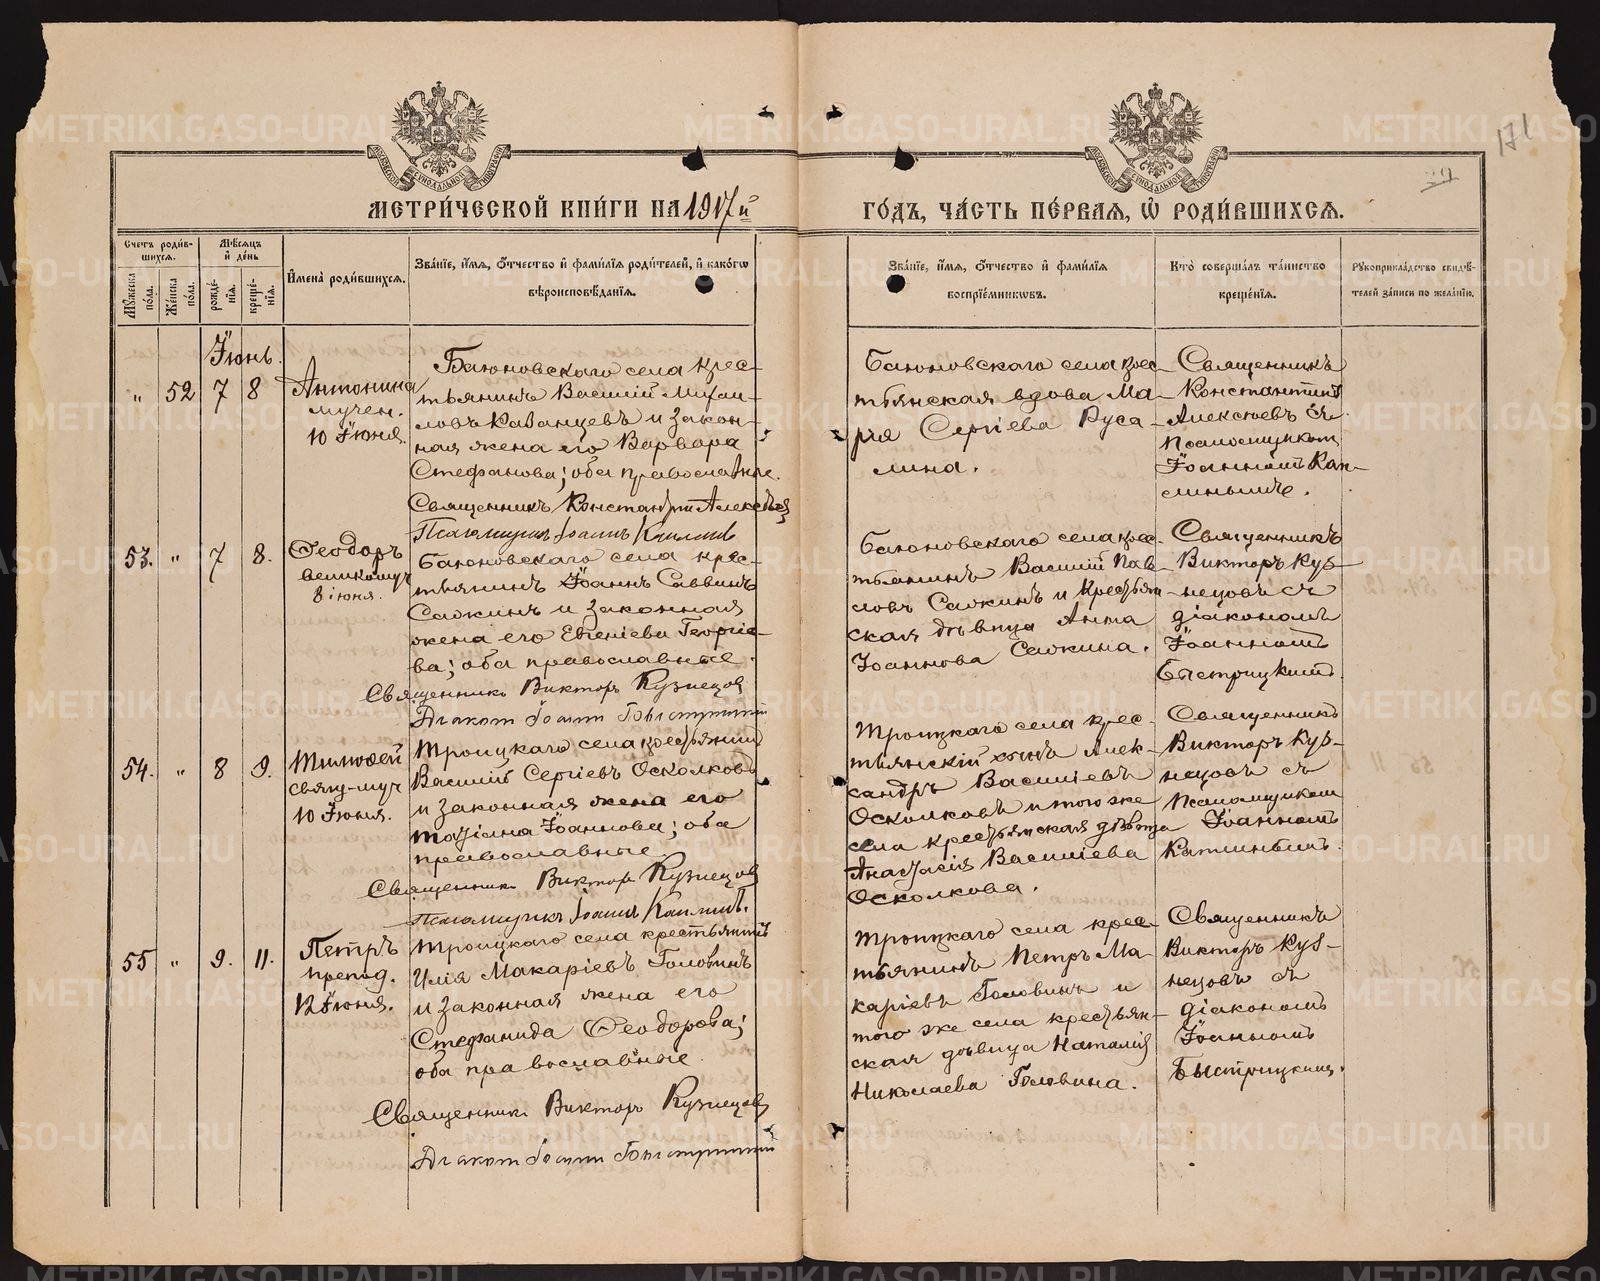 МЕТРИ́ЧЕСКОЙ КНИ́ГИ НА 1917й
ГО́ДЪ, ЧА́СТЬ ПЕ́РВАЯ, Ѡ РОДИ́ВШИХСЯ.
171
Счетъ роди́вшихся.
Мꙋжеска по́ла.
Же́нска по́ла.
Мѣ́сяцъ и́ де́нь
рожде́нїѧ.
креще́нїѧ.
И́мена̀ роди́вшихся.
Зва́нїе, и́мѧ, ѻ́тчество и́ фами́лїѧ роди́телей, и́ како́гѡ
вѣроисповѣ́данїѧ.
Зва́нїе, и́мѧ, ѻ́тчество и́ фами́лїѧ
воспрїе́мникѡвъ.
Кто̀ соверша́лъ та́инство
креще́нїѧ.
Рꙋкоприкла́дство свидѣ́-
телей за́писи по жела́нїю.
Іюнь.
„ 52 7 8
Антонина
мучен.
10 Іюня.
Баюновскаго села крес-
тьянинъ Василій Михаи-
ловъ Казанцевъ и закон-
ная жена его Варвара
Стефанова; оба православные.
Священникъ Константинъ Алексѣевъ
Псаломщикъ Іоаннъ Каплинъ
Баюновскаго села крес-
тьянская вдова Ма-
рія Сергіева Руса-
лина.
Священникъ
Константинъ
Алексѣевъ съ
Псаломщикомъ
Іоанномъ Кап-
линымъ.
53. „ 7 8.
Ѳеодоръ
великомуч
8 іюня.
Баюновскаго села крес-
тьянинъ Іоаннъ Саввинъ
Салкинъ и законная
жена его Евгеніева Георгіе-
ва; оба православные.
Священникъ Викторъ Кузнецовъ
Діаконъ Іоаннъ Быстрицкій
Баюновскаго села крес-
тьянинъ Василій Пав-
ловъ Салкинъ и крестьян
ская дѣвица Анна
Іоаннова Салкина.
Священникъ
Викторъ Куз-
нецовъ съ
діакономъ
Іоанномъ
Быстрицкимъ.
54. „ 8 9.
Тимоѳей
свящ-муч
10 Іюня.
Троицкаго села крестьянинъ
Василій Сергіевъ Осколковъ
и законная жена его
Татіана Іоаннова; оба
православные
Священникъ Викторъ Кузнецовъ
Псаломщикъ Іоаннъ Каплинъ.
Троицкаго села крес-
тьянскій сынъ Алек-
сандръ Василіевъ
Осколковъ и того же
села крестьянская дѣвица
Анастасія Василіева
Осколкова.
Священникъ
Викторъ Куз-
нецовъ съ
Псаломщикомъ
Іоанномъ
Каплинымъ.
55 „ 9. 11.
Петръ
препод.
12 Іюня.
Троицкаго села крестьянинъ
Илія Макаріевъ Головинъ
и законная жена его
Стефанида Ѳеодорова;
оба православные.
Священникъ Викторъ Кузнецовъ
Діаконъ Іоаннъ Быстрицкій
Троицкаго села крес-
тьянинъ Петръ Ма-
каріевъ Головинъ и
того же села крестьян-
ская дѣвица Наталія
Николаева Головина.
Священникъ
Викторъ Куз-
нецовъ съ
діакономъ
Іоанномъ
Быстрицким.
METRIKI.GASO-URAL.RU